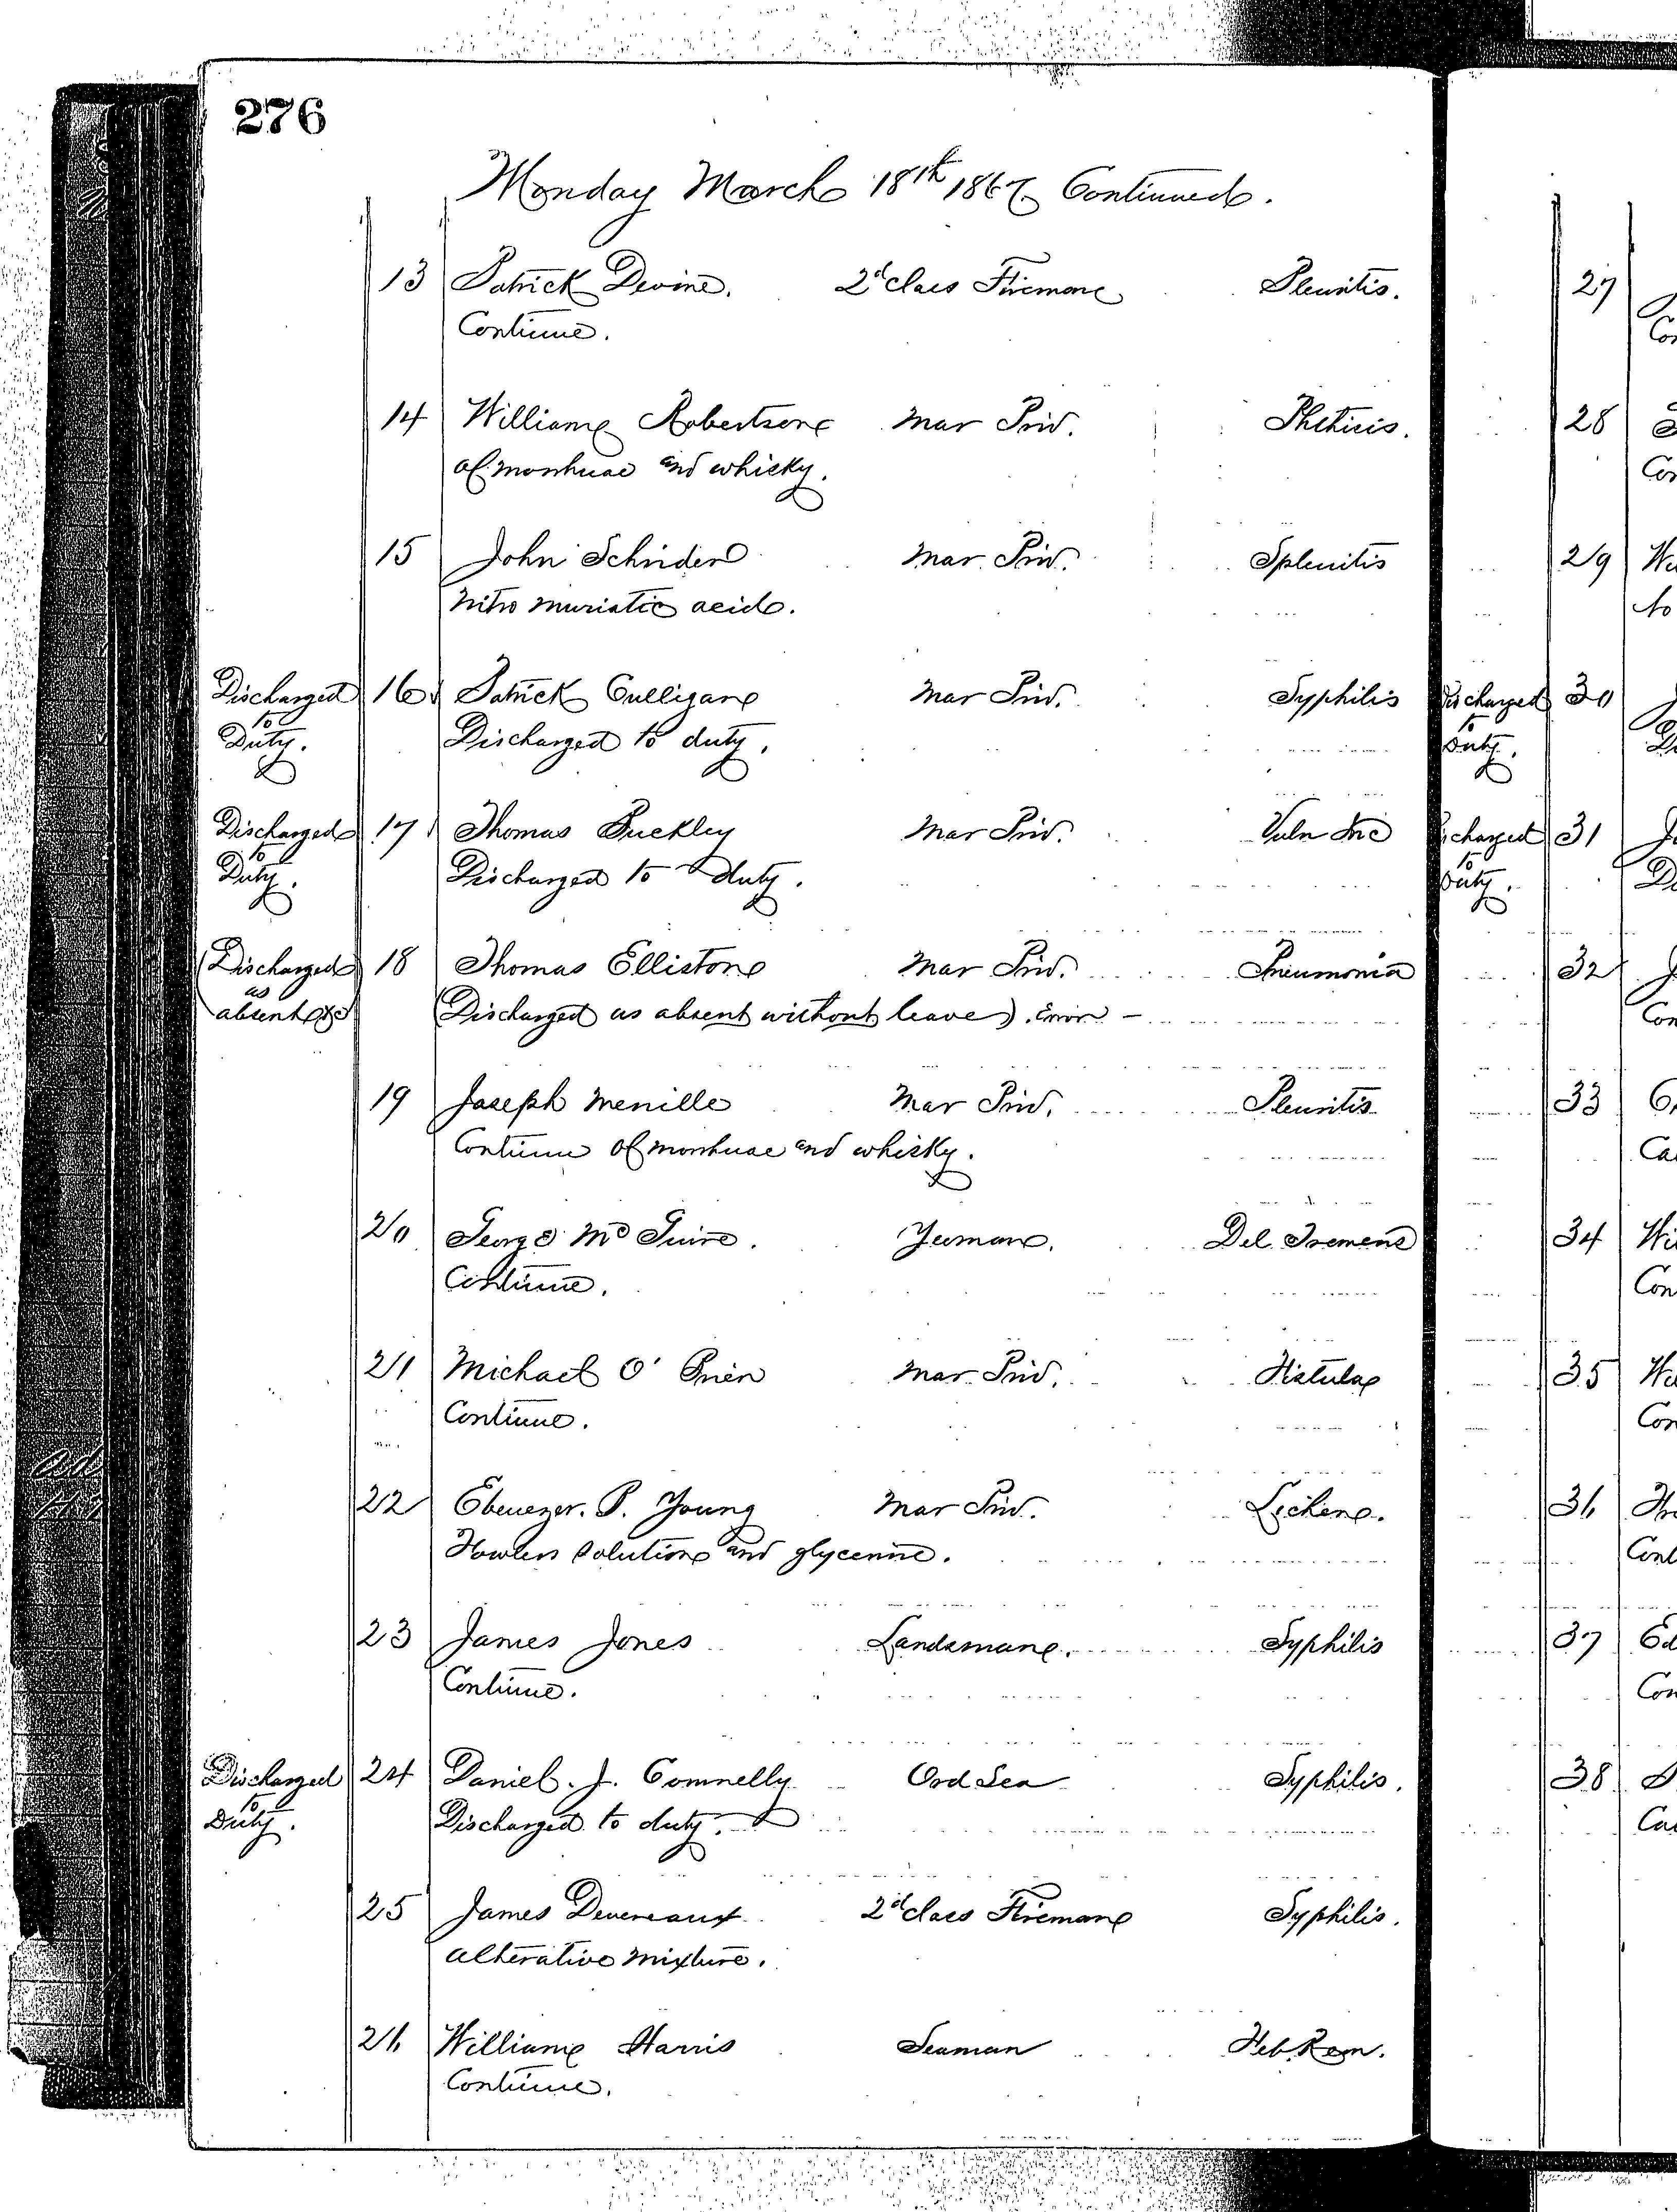 276
Monday March 18th 1867. Continued.
13 Patrick Devine. 2d class Fireman Pleuritis.
Continue.
14 William Robertson Mar Priv. Phthisis.
Ol morrhuae and whisky.
15 John Schrider Mar Priv. Splenitis
Nitro muriatic acid.
Discharged to Duty. 16 Patrick Culligan Mar Priv. Syphilis
Discharged to duty.
Discharged to Duty. 17 Thomas Buckley Mar Priv. Vuln Inc
Discharged to duty.
Discharged as absent &c 18 Thomas Elliston Mar Priv. Pneumonia
(Discharged as absent without leave). Error —
19 Joseph Menille Mar Priv. Pleuritis
Continue Ol morrhuae and whisky.
20 George McGuire. Yeoman. Del. Tremens
Continue.
21 Michael O' Brien Mar Priv. Fistula
Continue.
22 Ebenezer. P. Young Mar Priv. Lichen.
Fowlers solution and glycerine.
23 James Jones Landsman. Syphilis
Continue.
Discharged to Duty. 24 Daniel. J. Connelly Ord Sea Syphilis.
Discharged to duty.
25 James Devereaux 2d class Fireman Syphilis.
Alterative mixture.
26 William Harris Seaman Feb. Rem.
Continue.
27
28
29
to
Discharged to Duty. 30
Discharged to Duty. 31
32
33
34
35
36
37
38